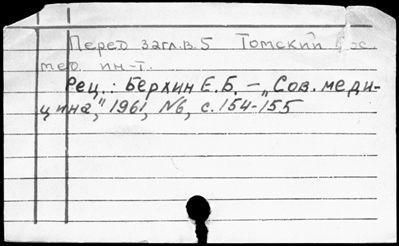 Перед загл. в. 5 Томский гос.
мед. ин-т.
Рец.: Берхин Е.Б. – „Сов. меди-
цина", 1961, №6, с. 154-155